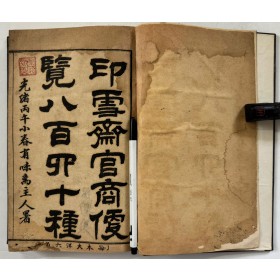 印雪齋官商便
覽八百四十種
光緒丙午小春有味焉主人署